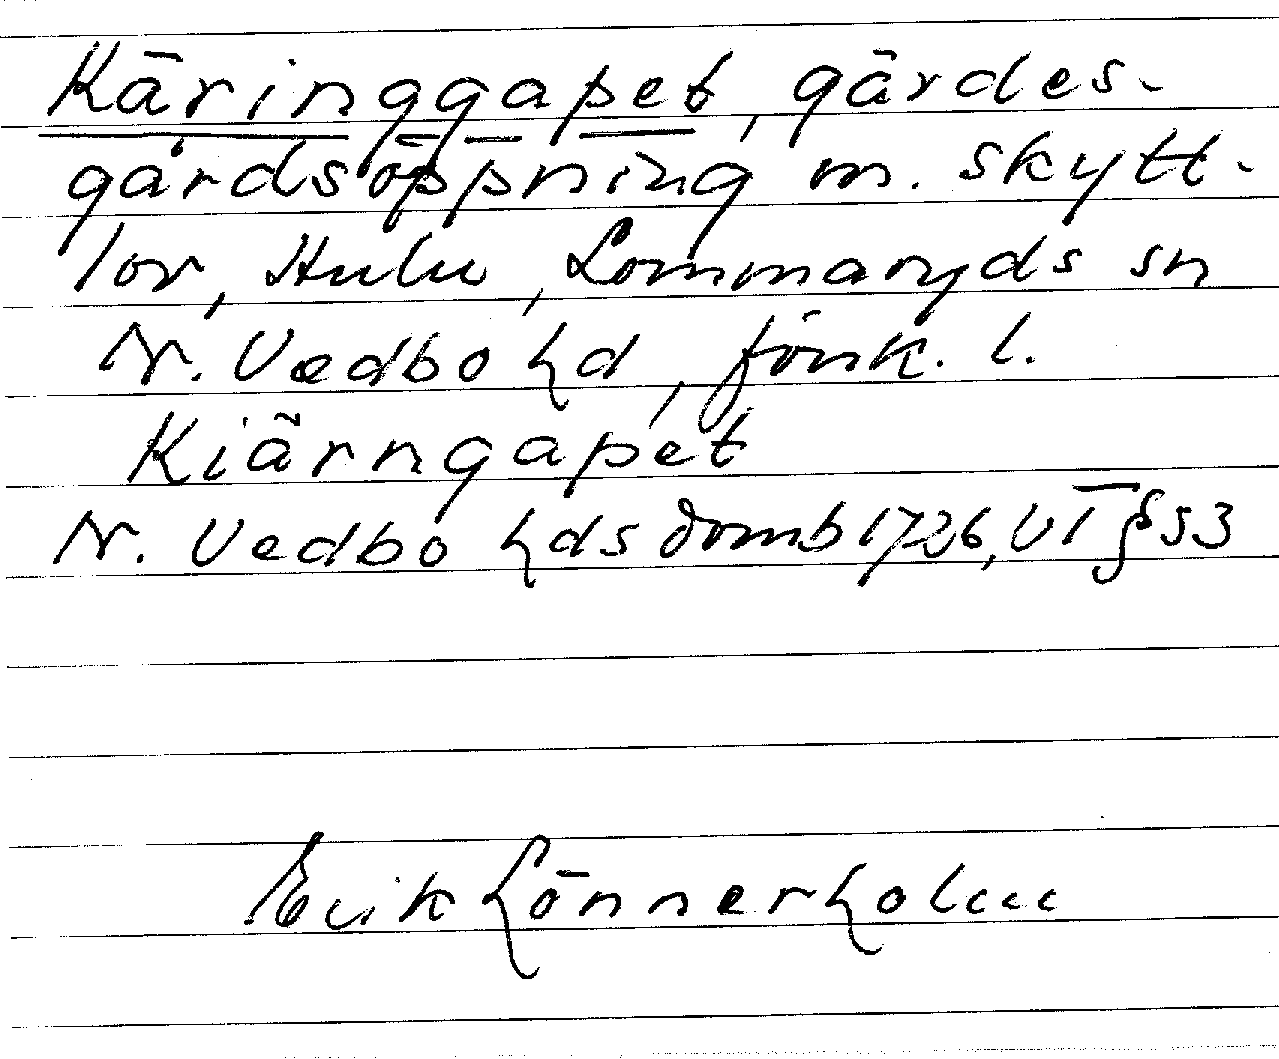 Käringgapet, gärdes-
gårdsöppning m. skytt-
lor, Hulu, Lommaryds sn
N. Vedbo hd, Jönk. l.
Kiärngapet
N. Vedbo hds domb 1726, VT § 53
Erik Lönnerholm